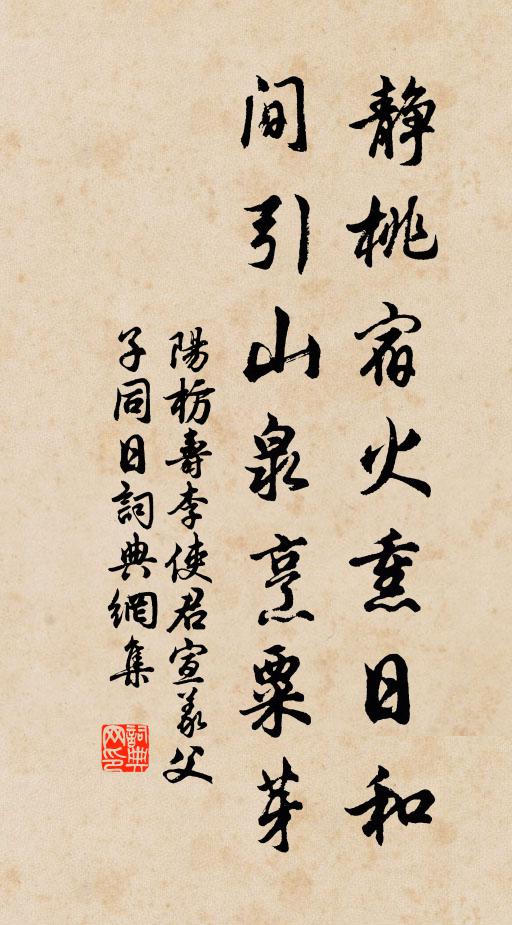 靜桃宿火熏日和
間引山泉烹粟芽
陽枋壽李使君宣義父
子同日詞典網集
詞典
网印